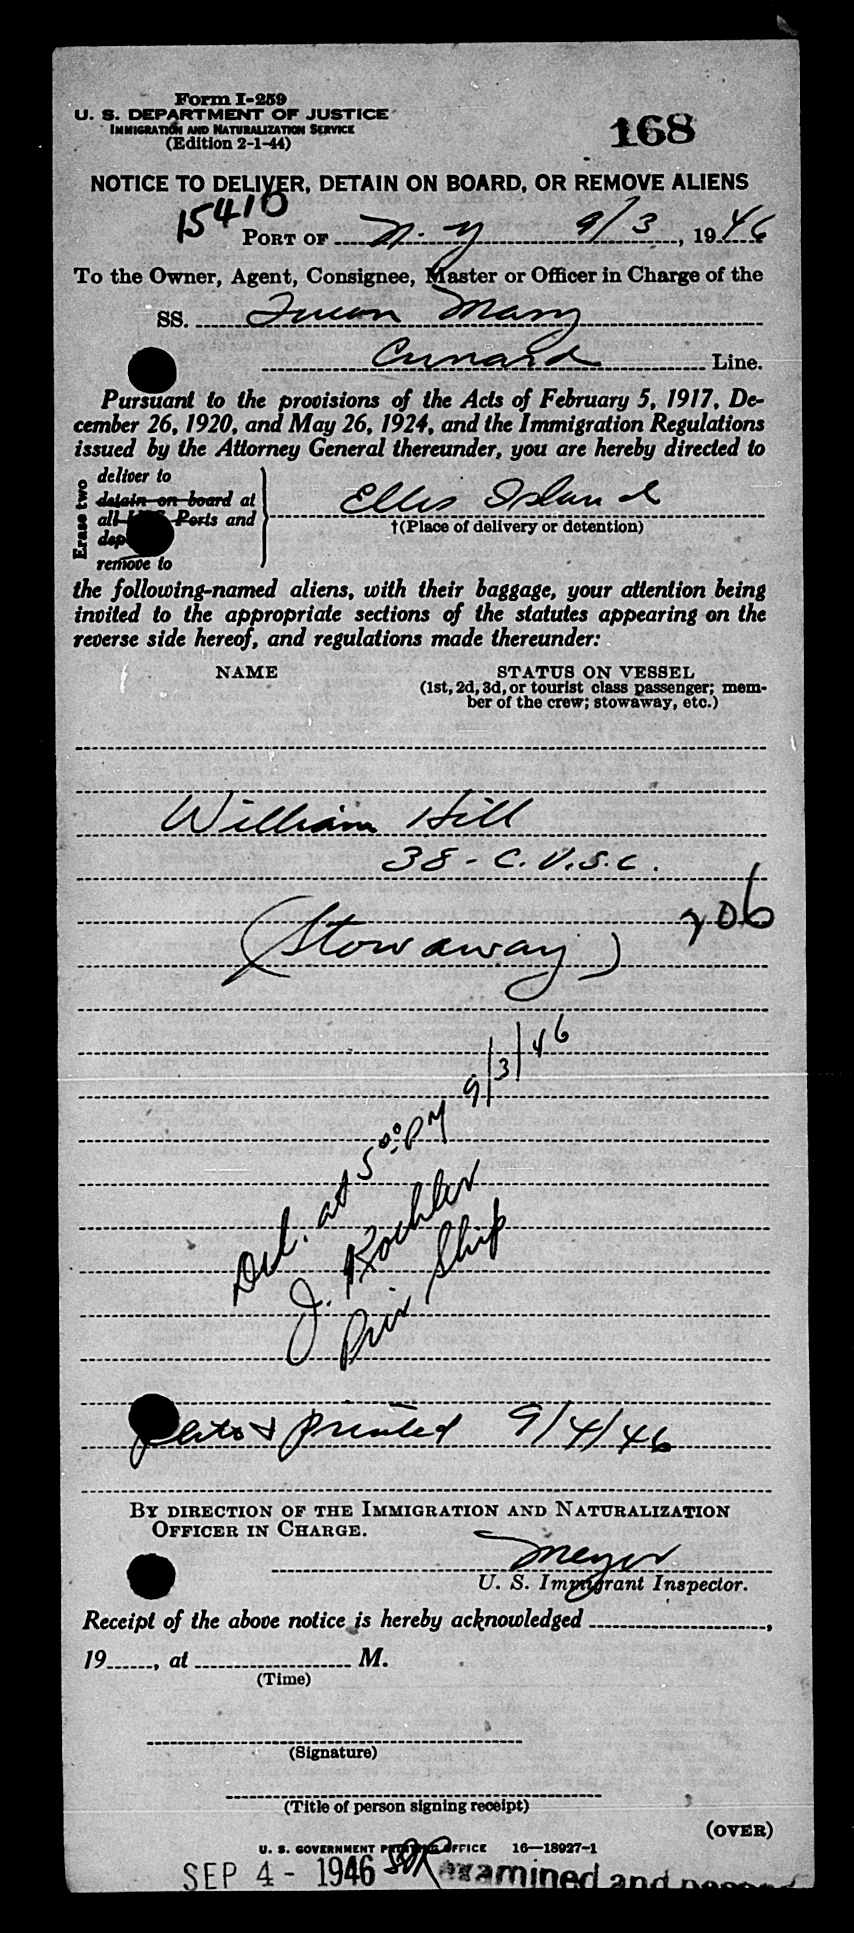 Form I-259
U. S. DEPARTMENT OF JUSTICE
IMMIGRATION AND NATURALIZATION SERVICE
(Edition 2-1-44)
168
NOTICE TO DELIVER, DETAIN ON BOARD, OR REMOVE ALIENS
15410
PORT OF N. Y 9/3, 1946
To the Owner, Agent, Consignee, Master or Officer in Charge of the
SS. Queen Mary
Cunard Line.
Pursuant to the provisions of the Acts of February 5, 1917, De-
cember 26, 1920, and May 26, 1924, and the Immigration Regulations
issued by the Attorney General thereunder, you are hereby directed to
Erase two
deliver to
detain on board at
all Ports and
remove to
Ellis Island
†(Place of delivery or detention)
the following-named aliens, with their baggage, your attention being
invited to the appropriate sections of the statutes appearing on the
reverse side hereof, and regulations made thereunder:
NAME STATUS ON VESSEL
(1st, 2d, 3d, or tourist class passenger; mem-
ber of the crew; stowaway, etc.)
William Hill
38 - C. V.S.C.
206
(Stowaway)
Del. at 5:00 PM 9/3/46
J. Koehler
Ship
printed 9/4/46
BY DIRECTION OF THE IMMIGRATION AND NATURALIZATION
OFFICER IN CHARGE.
Meyer
U. S. Immigrant Inspector.
Receipt of the above notice is hereby acknowledged ,
19 , at M.
(Time)
(Signature)
(Title of person signing receipt)
(OVER)
U. S. GOVERNMENT PRINTING OFFICE 16—18927-1
SEP 4 - 1946 examined and